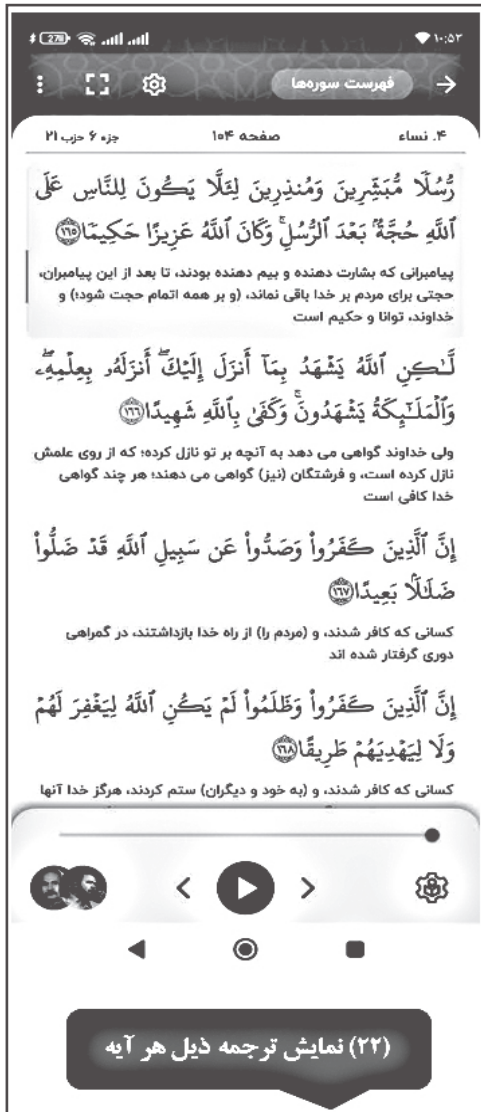 ۱۰:۵۲
27
فهرست سوره‌ها
۴. نساء صفحه ۱۰۴ جزء ۶ حزب ۲۱
رُّسُلًا مُّبَشِّرِينَ وَمُنذِرِينَ لِئَلَّا يَكُونَ لِلنَّاسِ عَلَى
ٱللَّهِ حُجَّةٌۢ بَعْدَ ٱلرُّسُلِۚ وَكَانَ ٱللَّهُ عَزِيزًا حَكِيمًا ١٦٥
پیامبرانی که بشارت دهنده و بیم دهنده بودند، تا بعد از این پیامبران،
حجتی برای مردم بر خدا باقی نماند، (و بر همه اتمام حجت شود؛) و
خداوند، توانا و حکیم است
لَّـٰكِنِ ٱللَّهُ يَشْهَدُ بِمَآ أَنزَلَ إِلَيْكَۖ أَنزَلَهُۥ بِعِلْمِهِۦۖ
وَٱلْمَلَـٰٓئِكَةُ يَشْهَدُونَۚ وَكَفَىٰ بِٱللَّهِ شَهِيدًا ١٦٦
ولی خداوند گواهی می دهد به آنچه بر تو نازل کرده؛ که از روی علمش
نازل کرده است، و فرشتگان (نیز) گواهی می دهند؛ هر چند گواهی
خدا کافی است
إِنَّ ٱلَّذِينَ كَفَرُوا۟ وَصَدُّوا۟ عَن سَبِيلِ ٱللَّهِ قَدْ ضَلُّوا۟
ضَلَـٰلًۢا بَعِيدًا ١٦٧
کسانی که کافر شدند، و (مردم را) از راه خدا بازداشتند، در گمراهی
دوری گرفتار شده اند
إِنَّ ٱلَّذِينَ كَفَرُوا۟ وَظَلَمُوا۟ لَمْ يَكُنِ ٱللَّهُ لِيَغْفِرَ لَهُمْ
وَلَا لِيَهْدِيَهُمْ طَرِيقًا ١٦٨
کسانی که کافر شدند، و (به خود و دیگران) ستم کردند، هرگز خدا آنها
(۲۲) نمایش ترجمه ذیل هر آیه